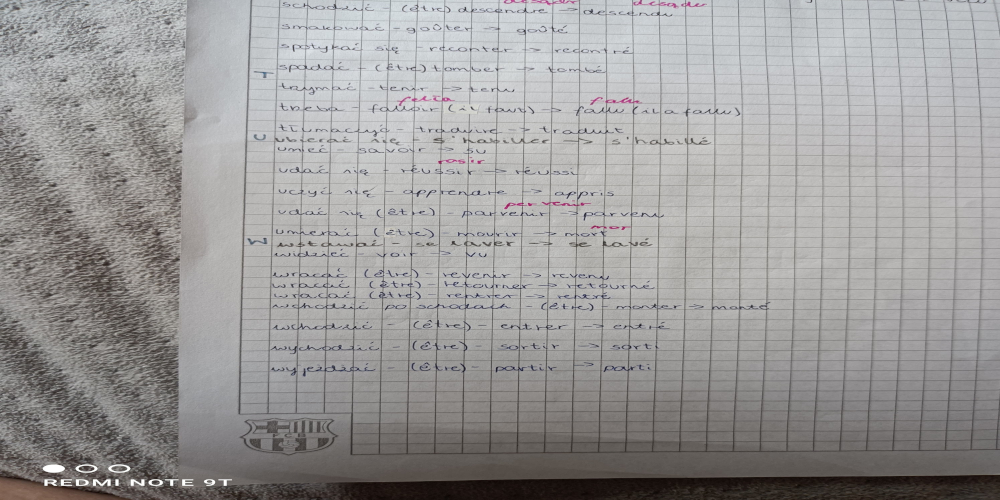 desądr desądu
schodzić - (être) descendre -> descendu
smakować - goûter -> goûté
spotykać się - reconter -> recontré
spadać - (être) tomber -> tombé
T
trzymać - tenir -> tenu
felła falu
trzeba - falloir (il faut) -> fallu (il a fallu)
tłumaczyć - traduire -> traduit
U ubierać się - s'habiller -> s'habillé
umieć - savoir -> su
udać się - réussir -> réussi
uczyć się - apprendre -> appris
per venir
udać się (être) - parvenir -> parvenu
mor
umierać (être) - mourir -> mort
W wstawać - se laver -> se lavé
widzieć - voir -> vu
wracać (être) - revenir -> revenu
wracać (être) - retourner -> retourné
wracać (être) - rentrer -> rentré
wchodzić po schodach - (être) - monter -> monté
wchodzić - (être) - entrer -> entré
wychodzić - (être) - sortir -> sorti
wyjeżdżać - (être) - partir -> parti
FCB
REDMI NOTE 9T